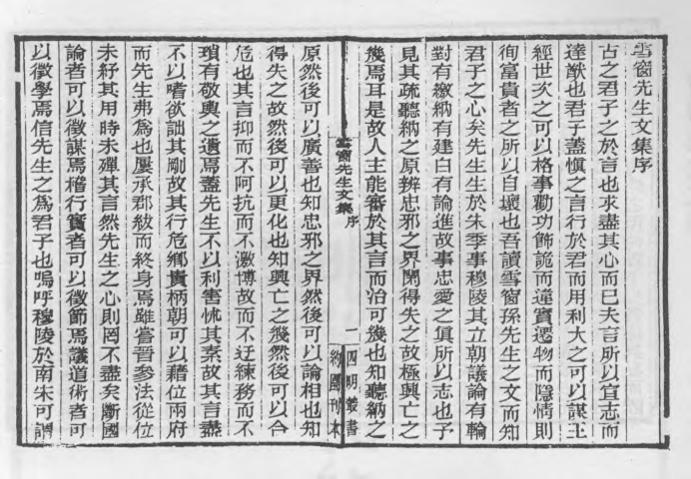 雪窗先生文集序
古之君子之於言也求盡其心而已夫言所以宣志而
達猷也君子盡愼之言行於君而用利大之可以謀王
經世次之可以格事勸功飾詭而違實遷物而隱情則
徇富貴者之所以自壞也吾讀雪窗孫先生之文而知
君子之心矣先生生於宋季事穆陵其立朝議論有輪
對有繳納有建白有論進故事忠愛之眞所以志也予
見其疏聽納之原辨忠邪之界閑得失之故極興亡之
幾焉耳是故人主能審於其言而治可幾也知聽納之
雪窗先生文集 序
一
四明叢書
約園刊本
原然後可以廣善也知忠邪之界然後可以論相也知
得失之故然後可以更化也知興亡之幾然後可以合
危也其言抑而不阿抗而不激博故而不迂練務而不
瑣有敬輿之遺焉蓋先生不以利害怵其素故其言盡
不以嗜欲詘其剛故其行危鄉貴柄朝可以藉位兩府
而先生弗爲也屢承郡紱而終身焉雖嘗晉參法從位
未紓其用時未殫其言然先生之心則罔不盡矣斷國
論者可以徵謀焉稽行實者可以徵節焉議道術者可
以徵學焉信先生之爲君子也嗚呼穆陵於南宋可謂